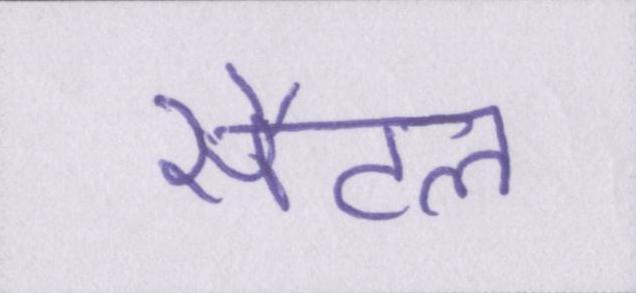 सैटल